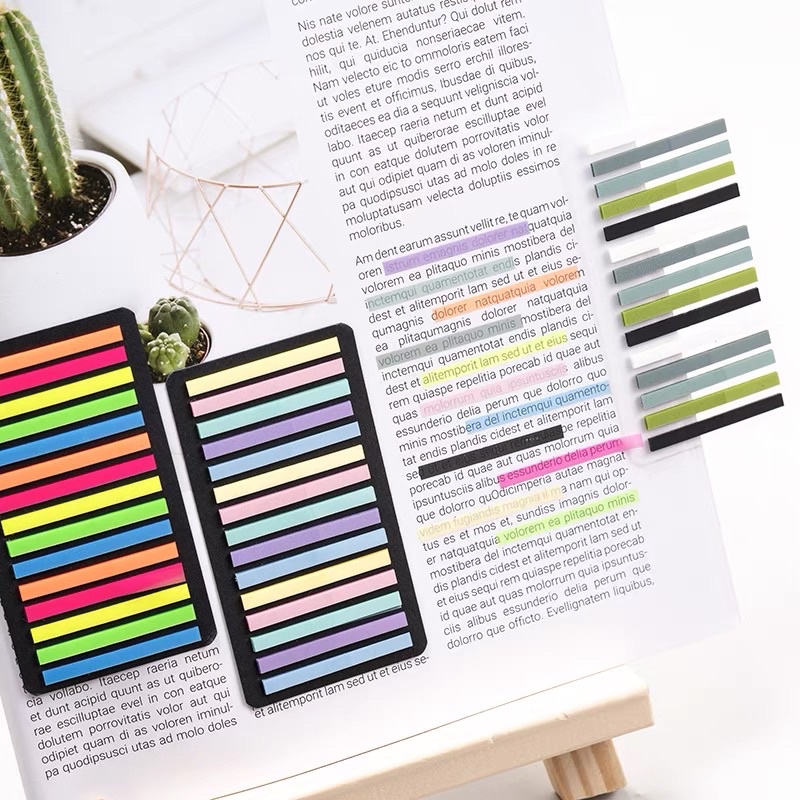 Nis nate volore
dolestia velenem autatus
nos qui te. At. Ehenduntur? Qui dolut rem
hilit, qui quiducia nonseriaecae vitem.
Nam velecto eic to ommoloris eatem faci
ut voles eture modis serro erchil illores-
tis event et officimus, Ibusdae di quibus,
oditaeces ea dia a sequunt veligniscia vol-
labo. Itaecep raeria netum et dunt acipid
quunt as ut quiberorae escilluptinum
in con eatque dolutem porrovitatis volor
aut qui odipiet quam di as voloren iminul-
pa quodipsusci utas ad molo doles in re
moluptatusam velecta doluptiis essimos
moloribus.
Am dent earum assunt vellit re, te quam vol-
oren strum emagnis dolorer nat quatquia
volorem ea plitaquo minis mostibera del
inctemqui quamentotat endis plandis ci-
dest et alitemporit lam sed ut et eius se-
qumagnis dolorer natquatquia volorem
ea plitaqumagnis dolorer natquatquia
volorem ea plitaquo minis mostibera del
inctemqui quamentotat endis plandis ci-
dest et alitemporit lam sed ut et eius sequi
rem quiaspe repelitia porecab id quae aut
quas molorrum quia ipsuntuscils alibus
essunderio delia perum que dolorro quo
minis mostibera del inctemqui quamento-
tat endis plandis cidest et alitemporit lam
se
porecab id quae aut quas molorrum quia
ipsuntusciis alibus essunderio delia perum
que dolorro quOdicimperia autae magnat
videm fugiandis magnia il ma nam qui op-
tus es et mos et, sundiss imagnis dolor-
er natquatquia volorem ea plitaquo minis
mostibera del inctemqui quamentotat en-
dis plandis cidest et alitemporit lam sed ut
et eius sequi rem quiaspe repelitia porecab
id quae aut quas molorrum quia ipsuntus-
ciis alibus essunderio delia perum que
dolorro que officto. Evellignetam libus,
cia vollabo. Itaecep raeria netum
et dunt acipid quunt as ut quibero-
rae escilluptinum evel in con eatque
dolutem porrovitatis volor aut qui
odipiet quam di as voloren iminul-
pa quodipsusci utas ad molo doles
et alitemporit lam sed ut et eius se-